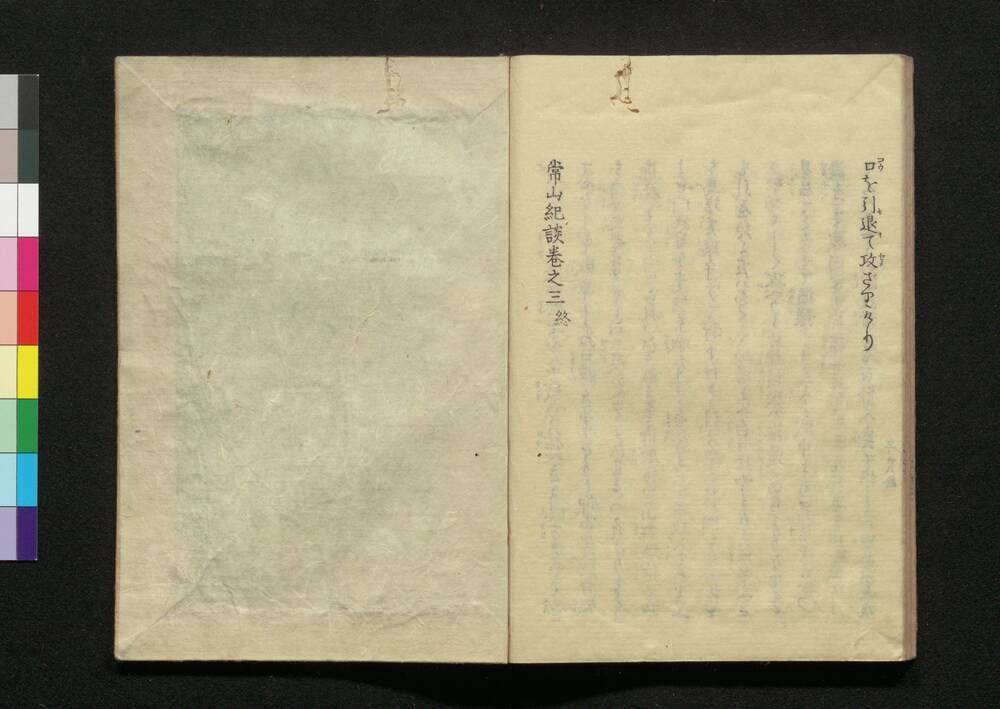 口を引退て攻ざりけり
常山紀談巻之三終